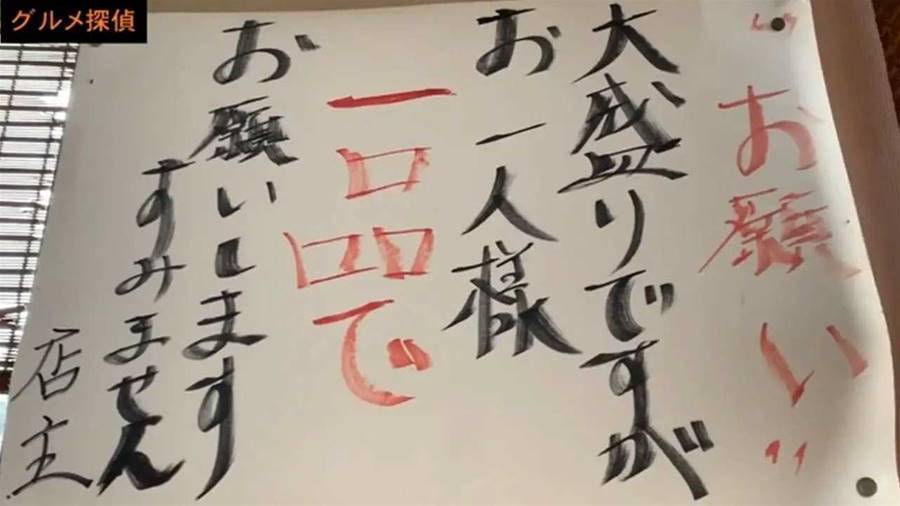 グルメ探偵
〝お願い〟
大盛りですが
お一人様
一品で
お願いします
すみません
店主